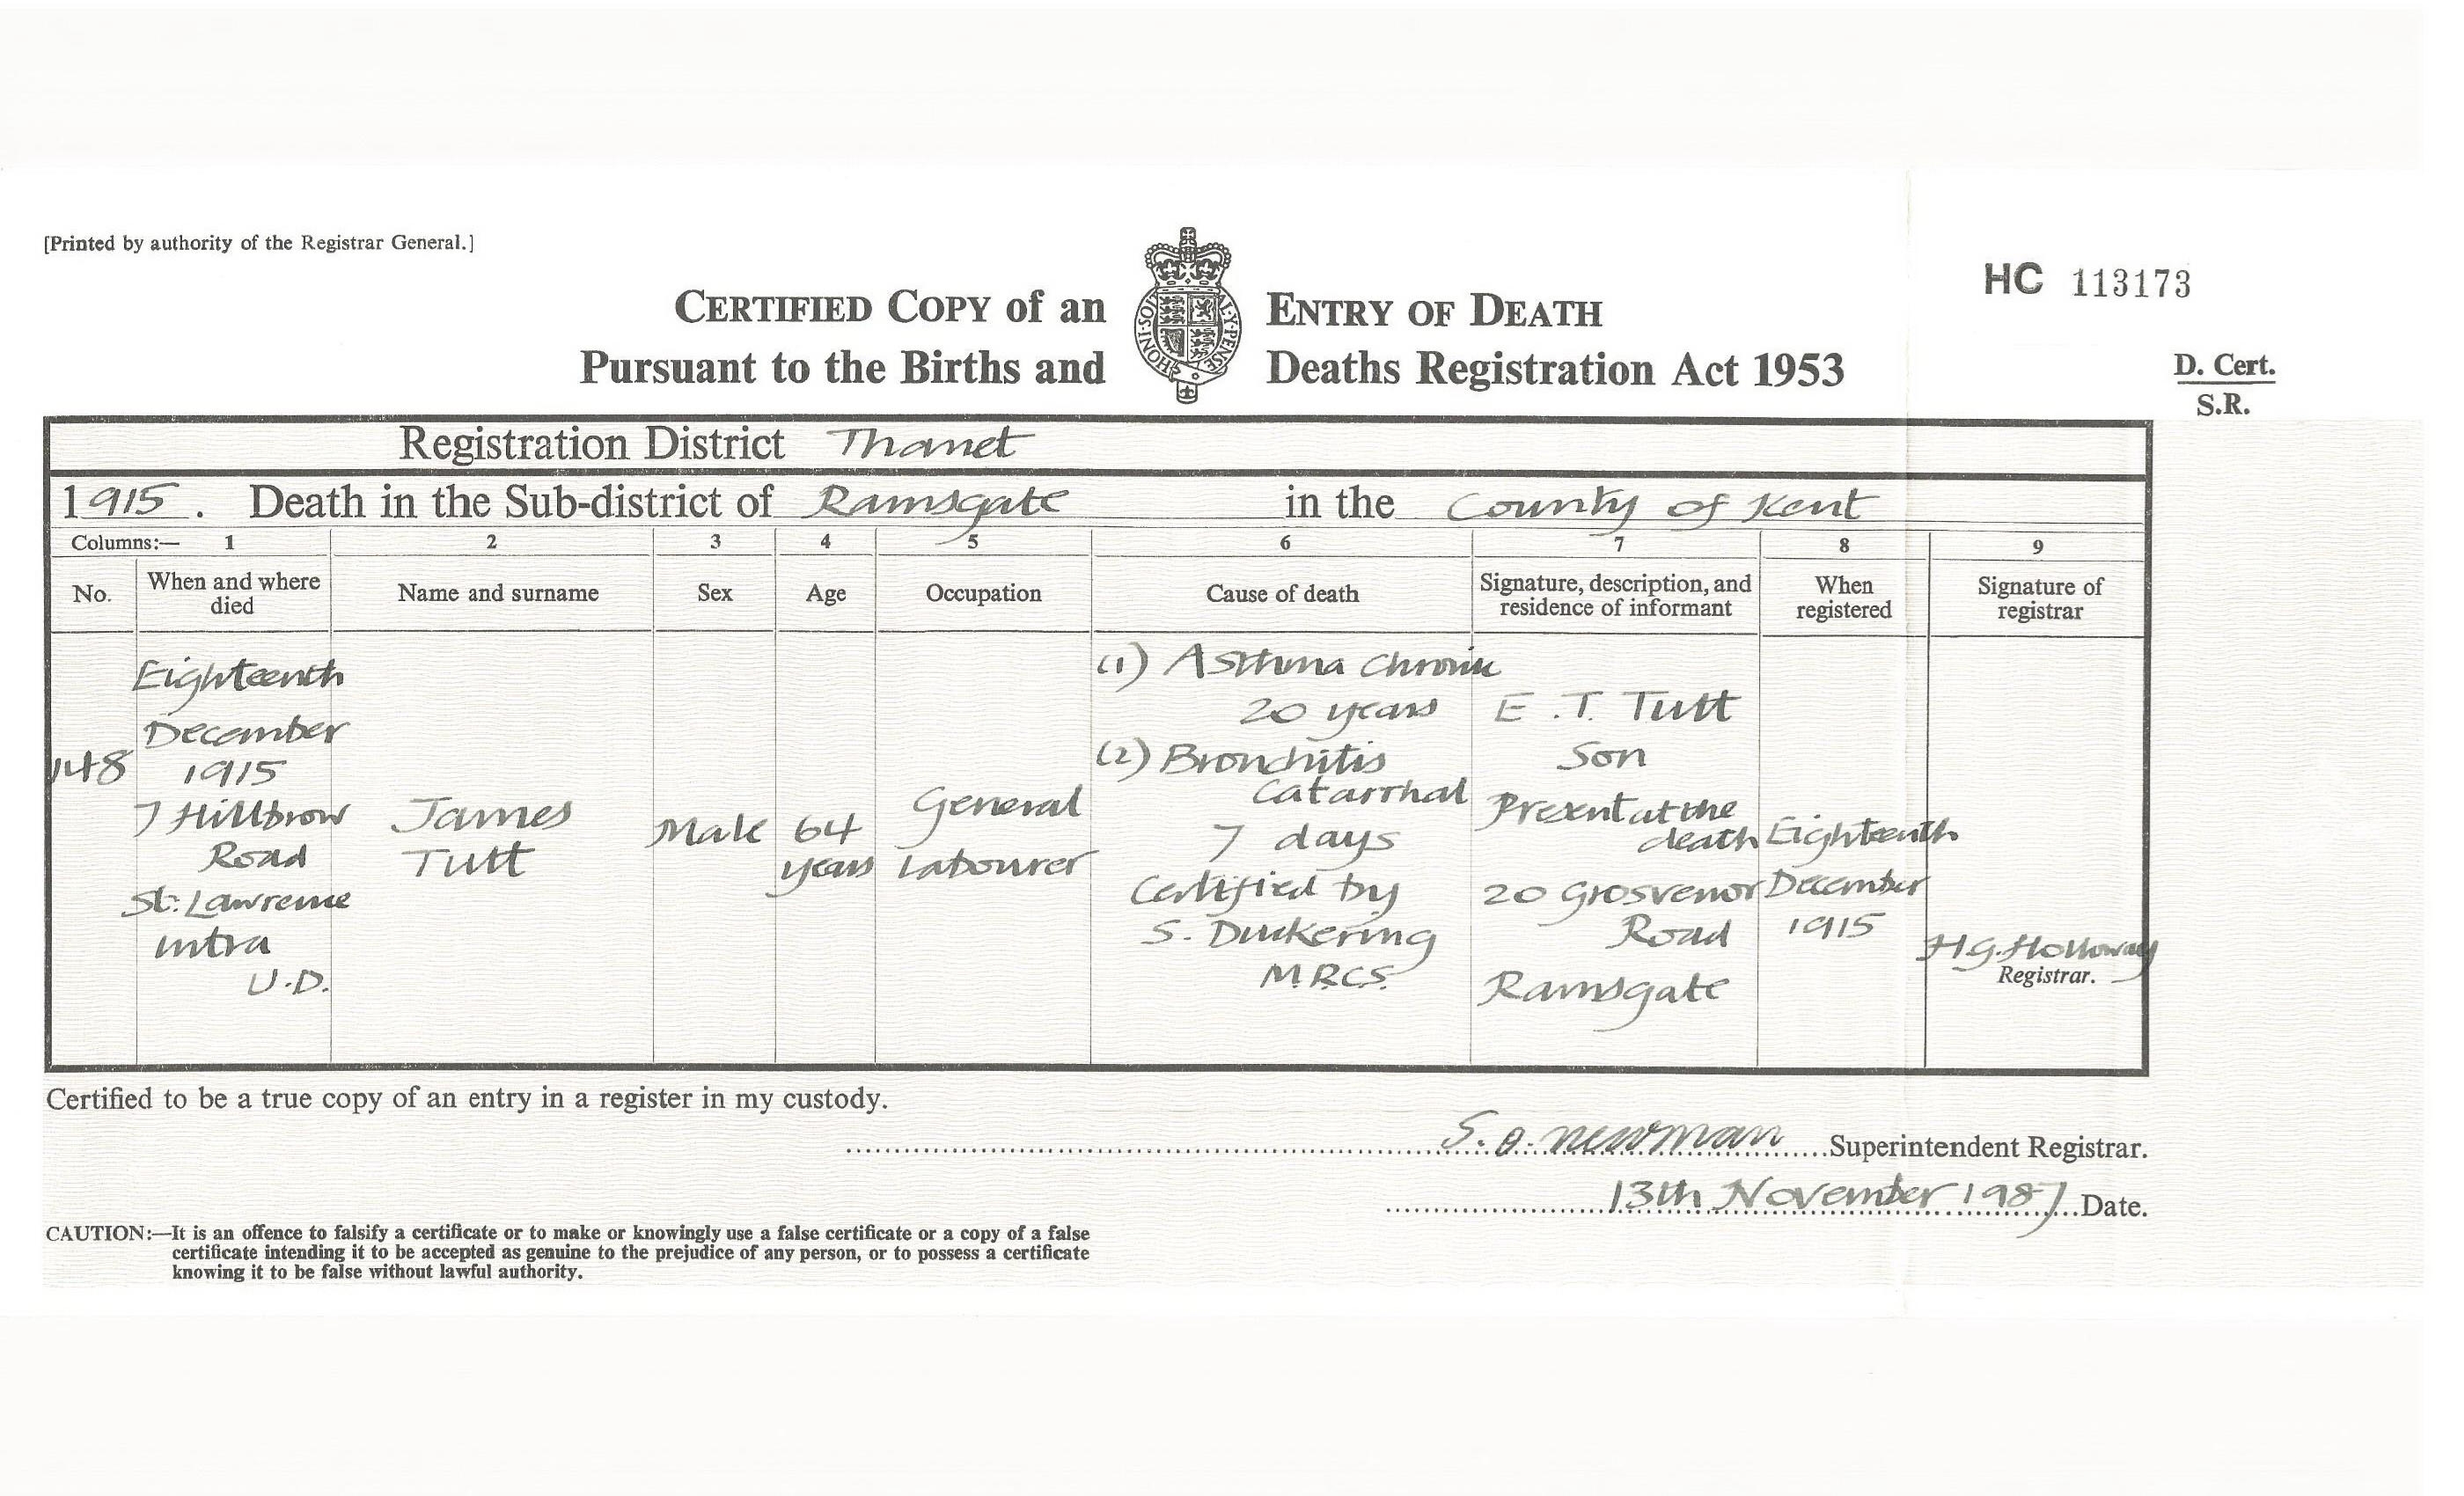 [Printed by authority of the Registrar General.]
HC 113173
CERTIFIED COPY of an ENTRY OF DEATH
Pursuant to the Births and Deaths Registration Act 1953
HONI·SOI AL·Y·PENSE
D. Cert.
S.R.
Registration District Thanet
1915. Death in the Sub-district of Ramsgate in the County of Kent
Columns:— 1 2 3 4 5 6 7 8 9
No.
When and where
died
Name and surname
Sex
Age
Occupation
Cause of death
Signature, description, and
residence of informant
When
registered
Signature of
registrar
148
Eighteenth
December
1915
7 Hillbrow
Road
St. Lawrence
intra
U.D.
James
Tutt
Male
64
years
General
Labourer
(1) Asthma Chronic
20 years
(2) Bronchitis
Catarrhal
7 days
Certified by
S. Duckering
M.R.C.S.
E.T. Tutt
Son
Present at the
death
20 Grosvenor
Road
Ramsgate
Eighteenth
December
1915
H.G. Holloway
Registrar.
Certified to be a true copy of an entry in a register in my custody.
S. Newman Superintendent Registrar.
13th November 1987 Date.
CAUTION:—It is an offence to falsify a certificate or to make or knowingly use a false certificate or a copy of a false
certificate intending it to be accepted as genuine to the prejudice of any person, or to possess a certificate
knowing it to be false without lawful authority.